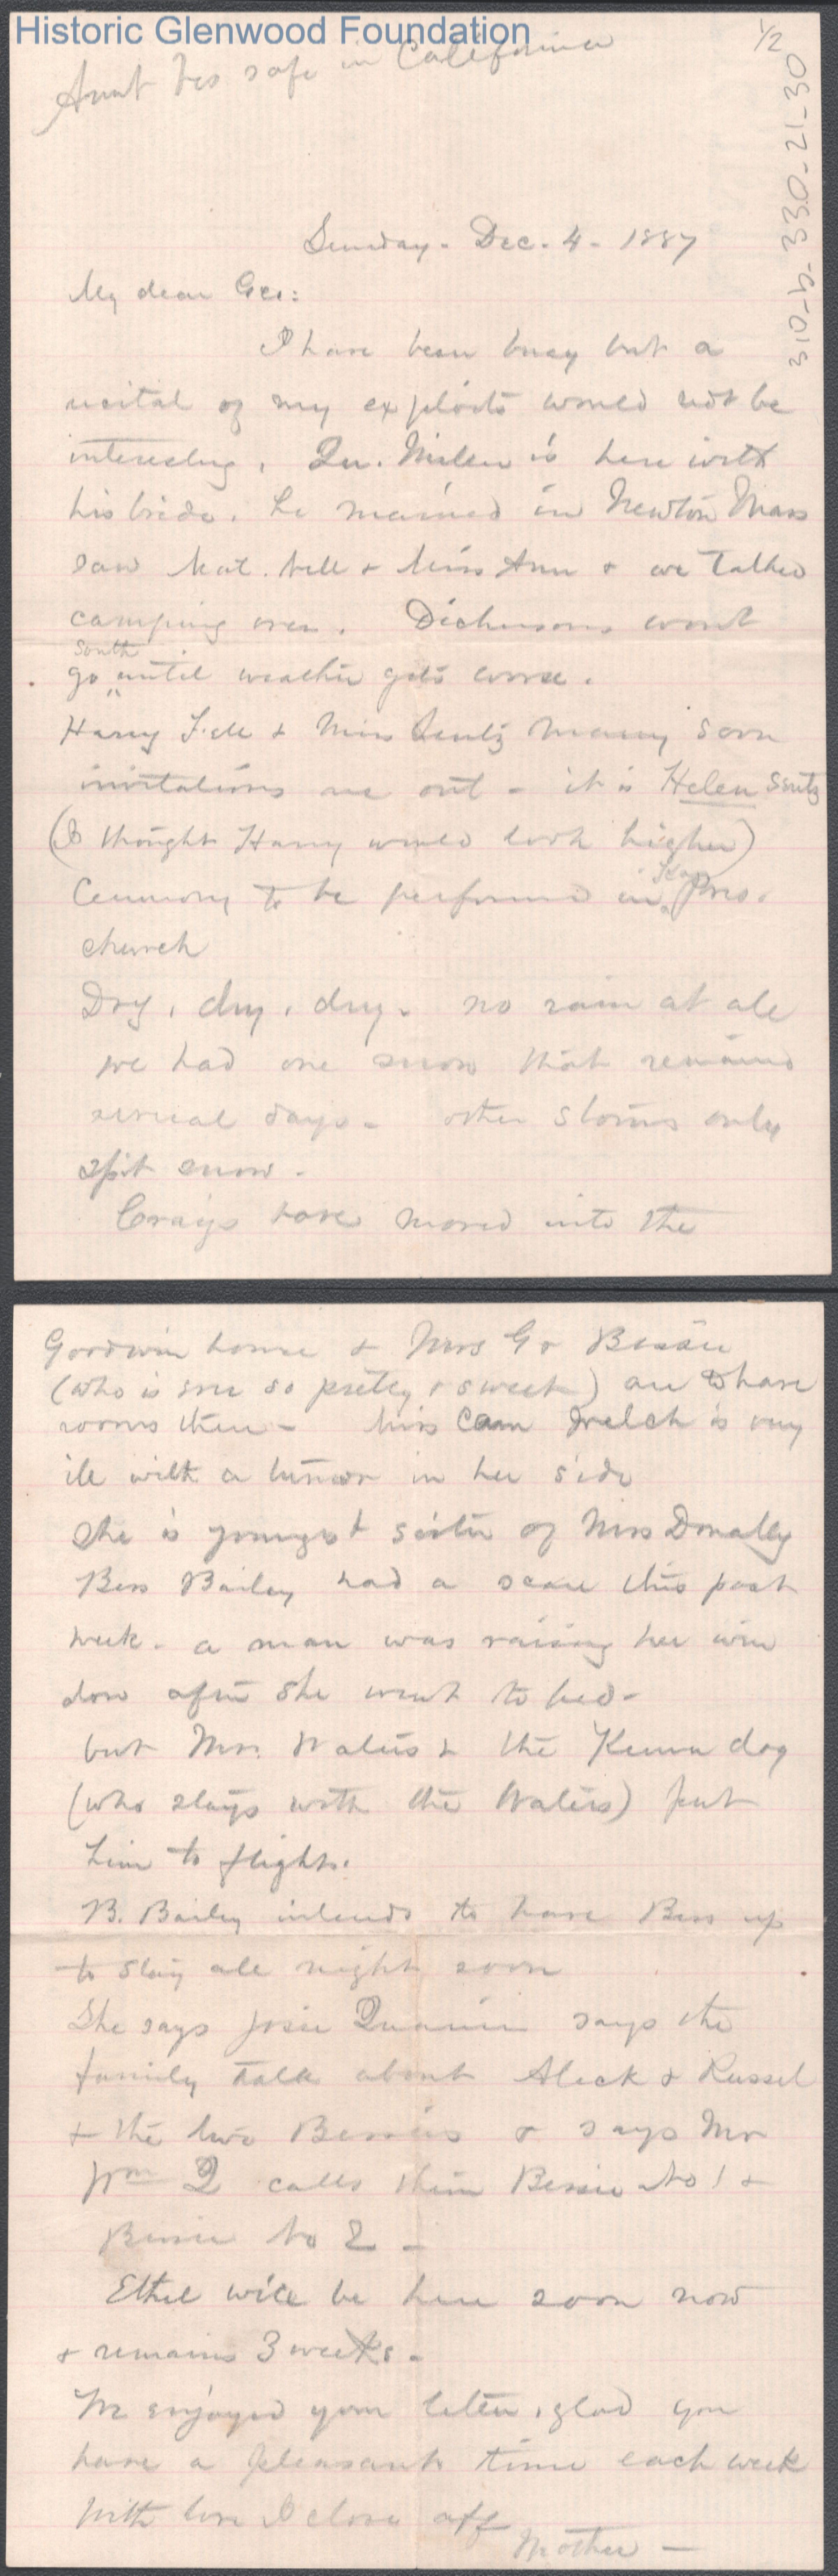 Historic Glenwood Foundation
1/2
Aunt safe in California
310-b-330-21-30
Sunday - Dec. 4 - 1887
My dear Geo:
I have been busy but a
recital of my exploits would not be
interesting. Qu. Millen is here with
his bride. he married in Newton Mass
saw Mat. Nell & Miss Ann & we talked
camping over. Dickinsons wont
south
go until weather gets worse.
Harry & Miss marry soon
invitations are out - it is Helen
(I thought Harry would look higher)
Ceremony to be performed in Pres.
church
Dry, dry, dry. no rain at all
we had one snow that remained
several days - other storms only
spit snow -
Craigs have moved into the
Goodwin house & Mrs G & Bessie
(who is ever so pretty & sweet) are to have
rooms there - Miss Welch is very
ill with a tumor in her side
she is youngest sister of Mrs Donally
Bess Bailey had a scare this past
week - a man was raising her win
dow after she went to bed -
but Mrs. Waters & the dog
(who stays with the Waters) put
him to flight.
B. Bailey intends to have Bess up
to stay all night soon
She says Josie Quarrier says the
family talk about Aleck & Russel
& the two Bessies & says Mr
Wm Q calls them Bessie No 1 &
Bessie No 2 -
Ethel will be here soon now
& remains 3 weeks -
We enjoyed your letter, glad you
have a pleasant time each week
With love I close aff
Mother -